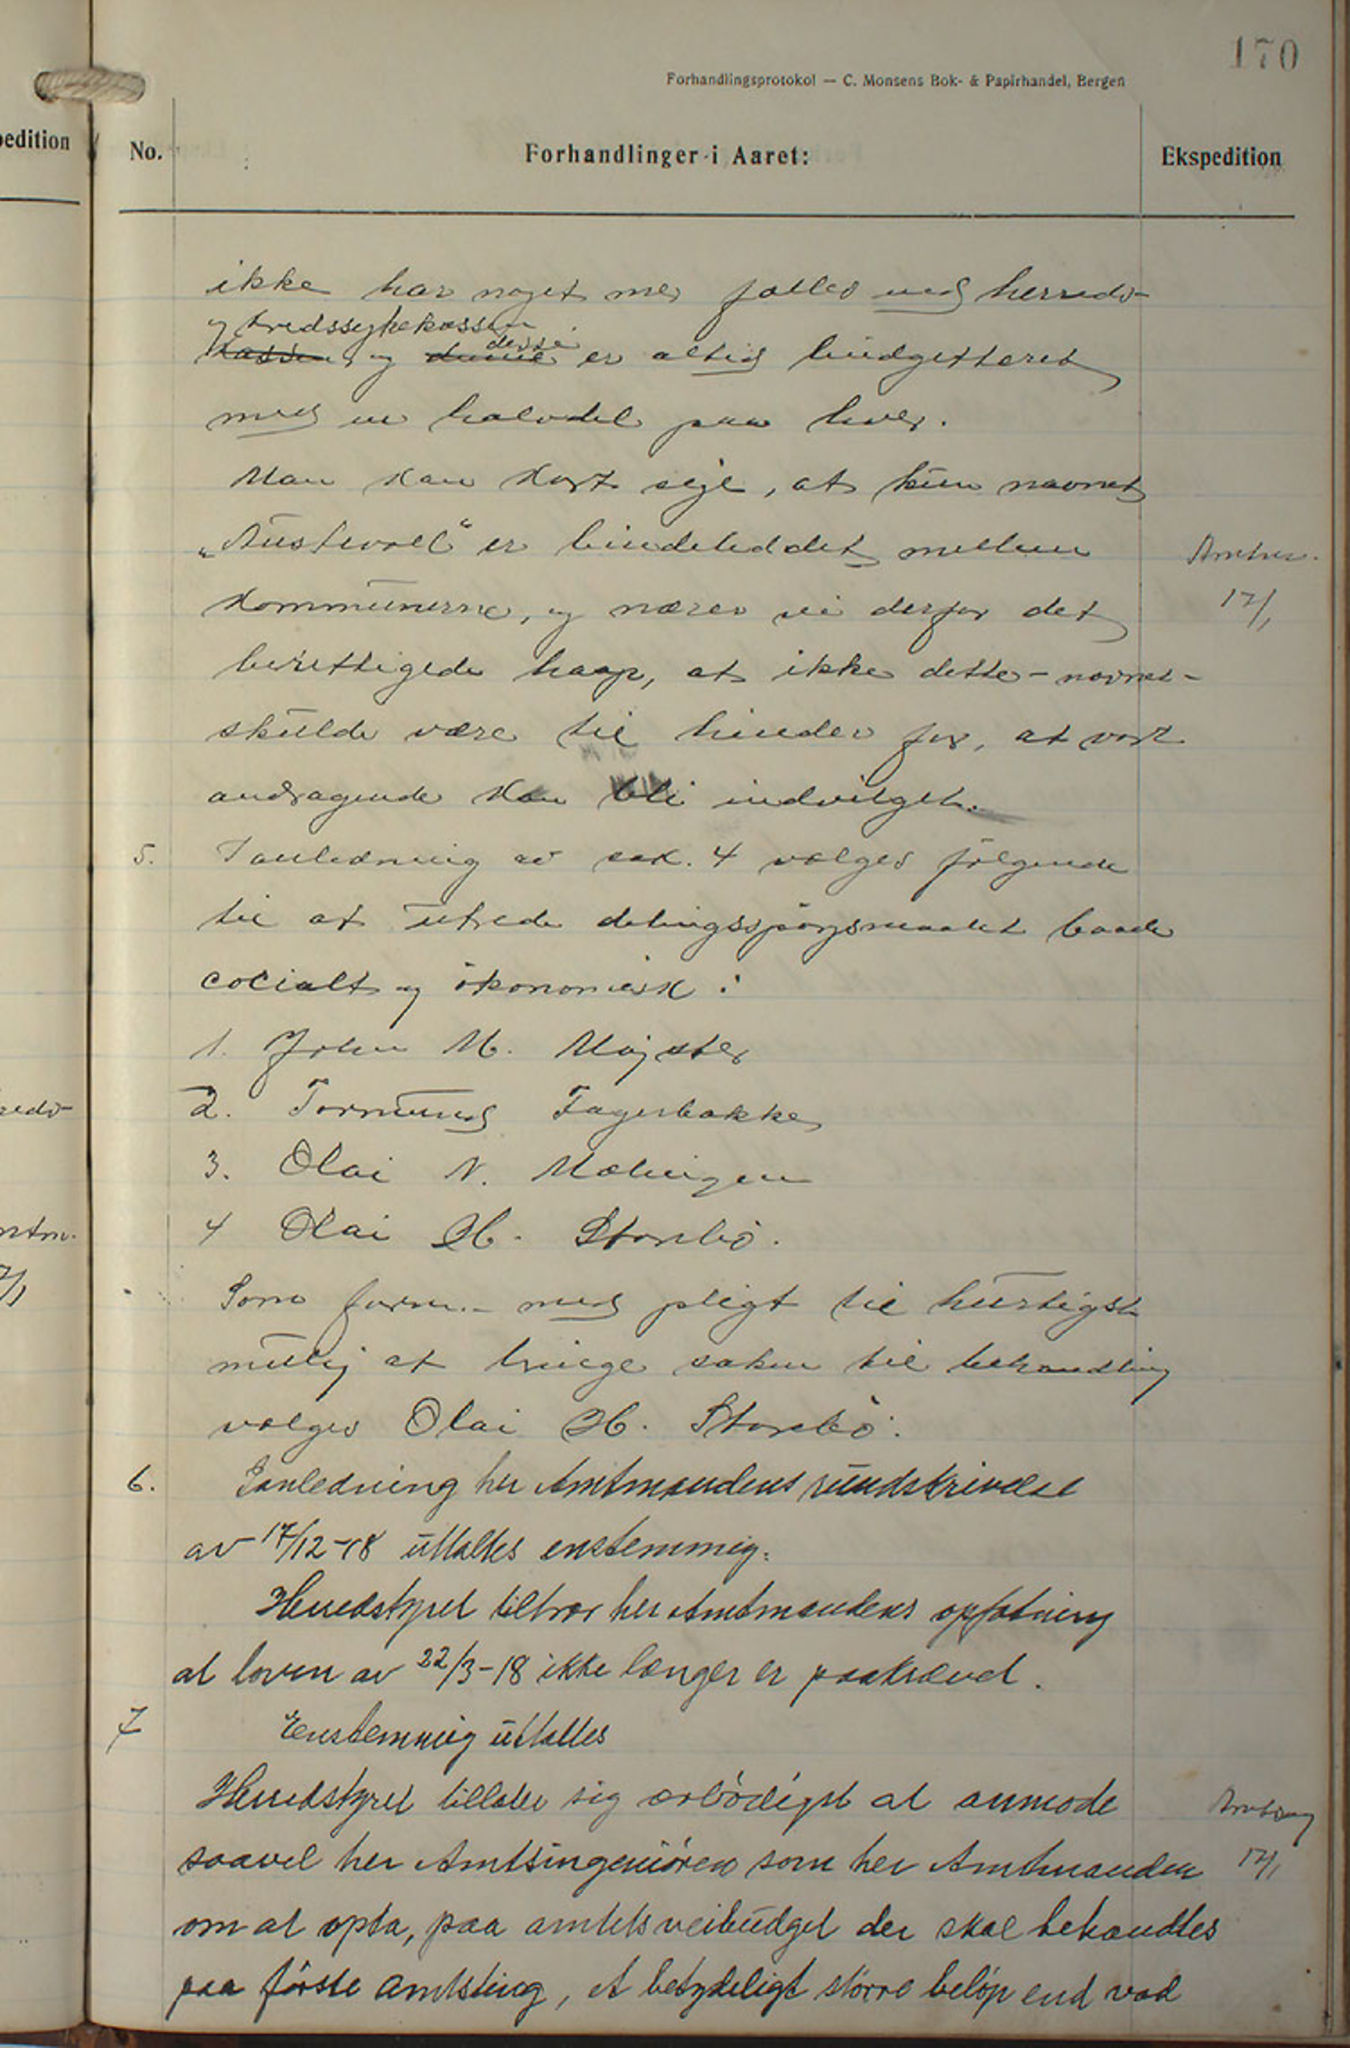 170
Forhandlingsprotokol — C. Monsens Bok- & Papirhandel, Bergen
pedition
No.
Forhandlinger i Aaret:
Ekspedition
ikke har noget med fælles med herreds-
og kredssykekassen
kassen og denne disse er altid budgetteret
med en halvdel paa hver.
Man kan kort sige, at kun navnet
"Austevoll" er bindeleddet mellem
kommunerne, og nærer vi derfor det
17/1
berettigede haap, at ikke dette - navnet -
skulde være til hinder for, at vort
andragende kan bli indvilget.
5. I anledning av sak. 4 vælges følgende
til at utrede delingsspørgsmaalet baade
socialt og økonomisk:
1. John M. Møgster
2. Tormund Fagerbakke
3. Olai N. Mælingen
4 Olai H. Storebø.
Som form. - med pligt til hurtigst
mulig at bringe saken til behandling
vælges Olai H. Storebø.
6. I anledning her Amtmandens rundskrivelse
av 17/12-18 uttaltes enstemmig:
Herredstyret tiltrær her Amtmandens opfatning
at loven av 22/3-18 ikke længer er paakrævet.
7 Enstemmig uttaltes
Herredstyret tillater sig ærbødigst at anmode
saavel her Amtsingeniøren som her Amtmanden
17/1
om at opta, paa amtets veibudget der skal behandles
paa første amtsting, et betydeligt større beløp end vad